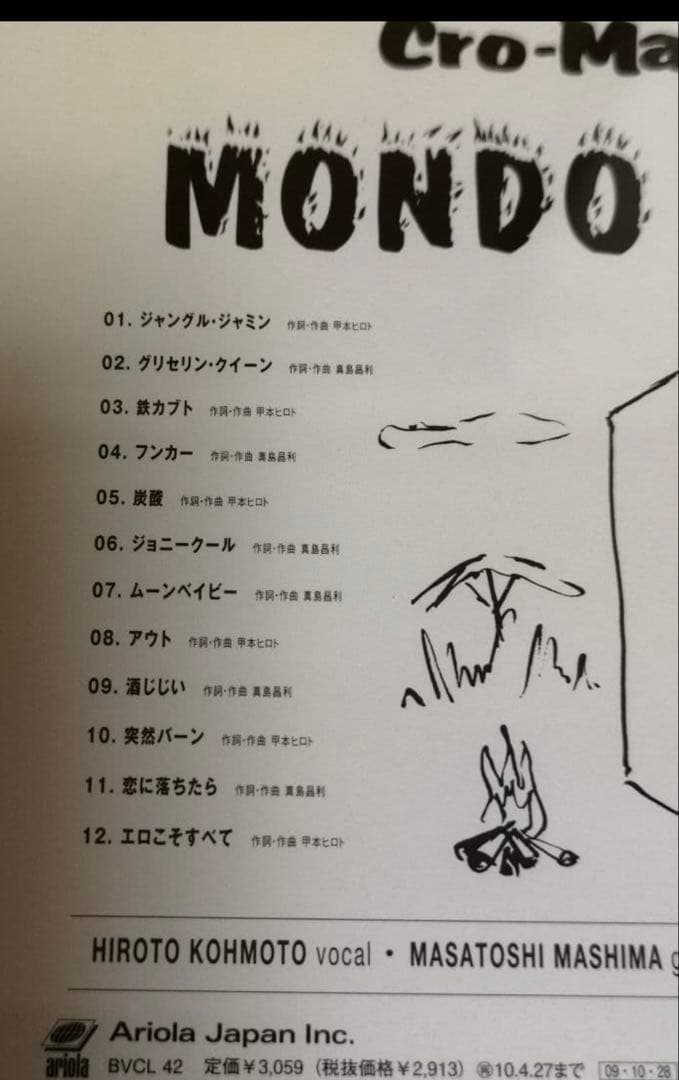 Cro-Ma
MONDO
01. ジャングル・ジャミン 作詞・作曲 甲本ヒロト
02. グリセリン・クイーン 作詞・作曲 真島昌利
03. 鉄カブト 作詞・作曲 甲本ヒロト
04. フンカー 作詞・作曲 真島昌利
05. 炭酸 作詞・作曲 甲本ヒロト
06. ジョニークール 作詞・作曲 真島昌利
07. ムーンベイビー 作詞・作曲 真島昌利
08. アウト 作詞・作曲 甲本ヒロト
09. 酒じじい 作詞・作曲 真島昌利
10. 突然バーン 作詞・作曲 甲本ヒロト
11. 恋に落ちたら 作詞・作曲 真島昌利
12. エロこそすべて 作詞・作曲 甲本ヒロト
HIROTO KOHMOTO vocal・MASATOSHI MASHIMA g
Ariola Japan Inc.
ariola BVCL 42 定価￥3,059（税抜価格￥2,913）㋐10.4.27まで 09・10・28